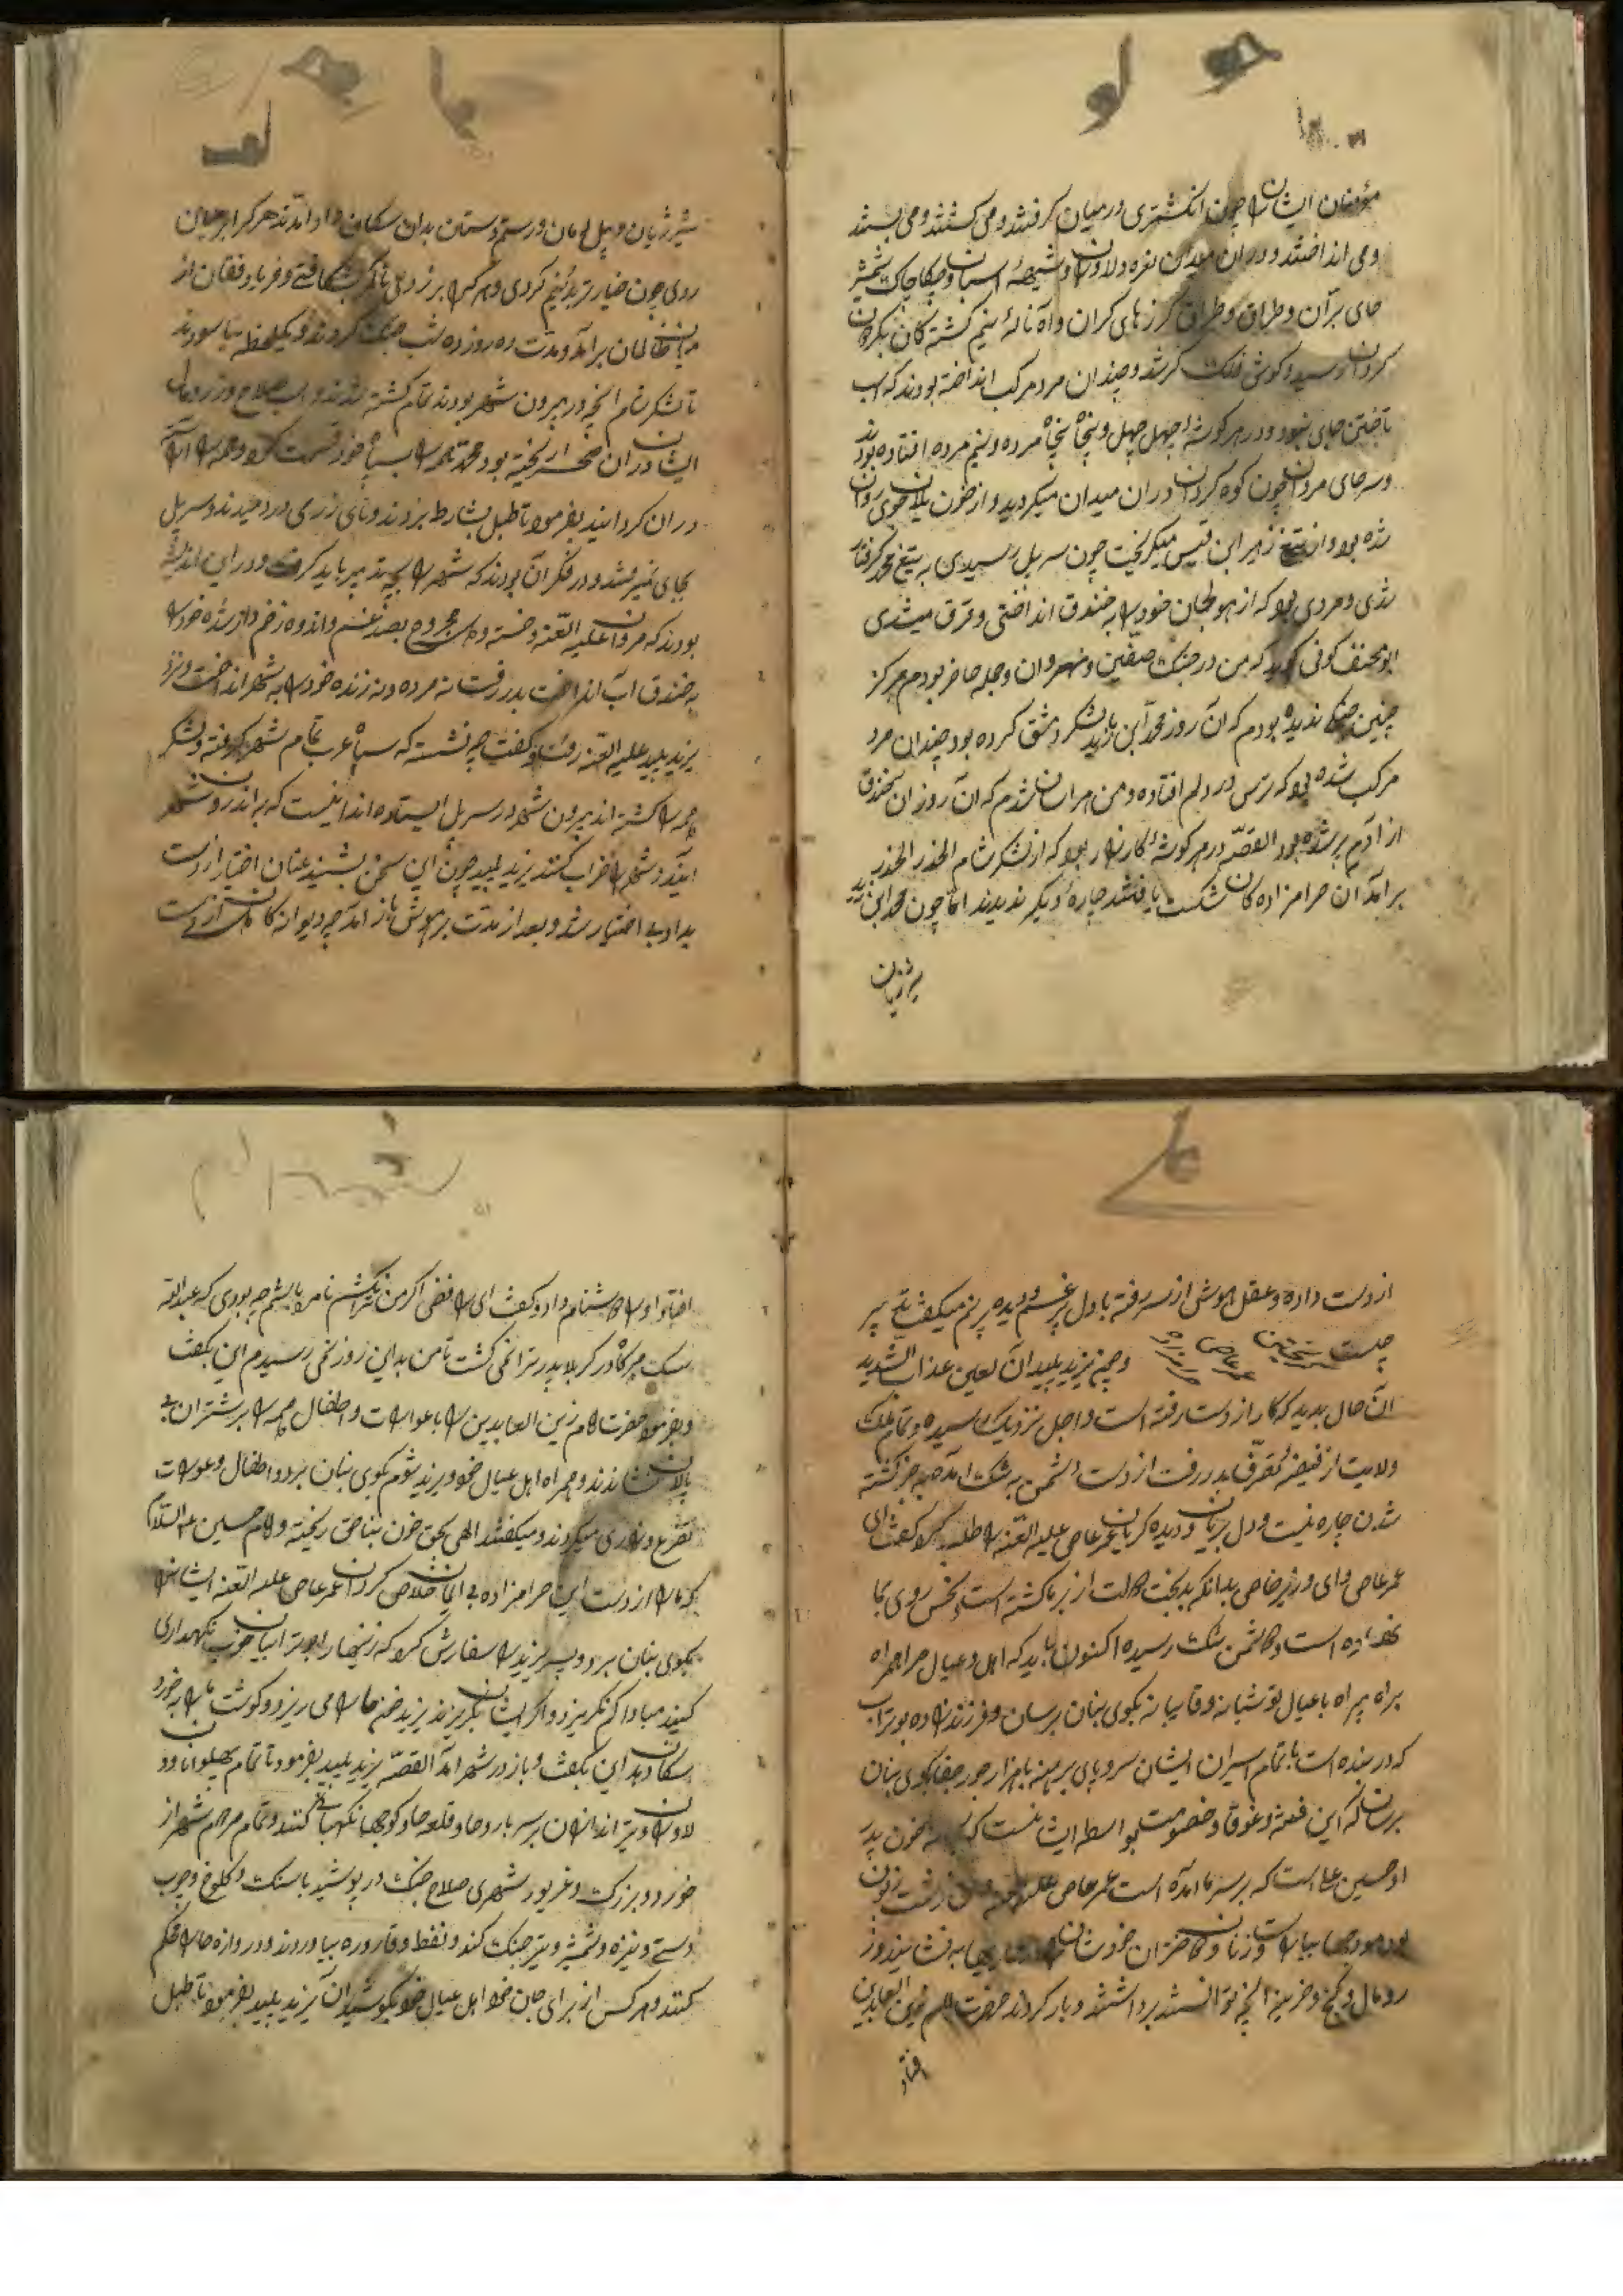 مؤمنان ایشان را چون انکشتری در میان کرفتند و می کشتند و می بستند
و می انداختند و در آن میدان نعره دلاوران و شیهه اسبان و چکاچاک شمشیر
های بران و طراق و طراق کرزهای کران و آه ناله نیم کشته کان بکردون
کردان رسید و کوش فلک کر شد و چندان مرد مرکب انداخته بودند که اسب
تاختن جای نبود و در هر کوشه چهل چهل و پنجاه پنجاه مرده و نیم مرده افتاده بودند
و سرهای مردان چون کوه کردان در آن میدان میکردید و از خون یلان جوی روان
شده بود و از تیغ زهیر ابن قیس میکریخت چون سر پل رسیدی به تیغ محمد کرفتار
شدی و مردی بود که از هول جان خود را به خندق انداختی و غرق میشدی
ابو مخنف کوفی کوید که من در جنک صفین و نهروان و جمله حاضر بودم هرکز
چنین جنک ندیده بودم که آن روز محمد ابن زید با لشکر دمشق کرده بود چندان مرد
مرکب شده بود که ترس در دلم افتاده و من هراسان شدم که آن روز آن خندق
از آدم پر شده بود القصه در هر کوشه کارزار بود که از لشکر شام الحذر الحذر
بر آمد آن حرامزاده کان شکست یافتند چاره دیکر ندیدند اما چون محمد ابن زید
شیر ژیان
شیر ژیان و پیل دمان و رستم دستان بدان سکان در آمدند هر که را بر میان
زدی چون خیار تر بدو نیم کردی و هر که را بر فرق زدی تا کمر شکافتی و فریاد و فغان از
ظالمان بر آمد و مدت ده روز ده شب جنک کردند و یکلحظه نیاسودند
تا لشکر شام انچه در بیرون شهر بودند تمام کشته شدند و اسب صلاح و زر و مال
ایشان در آن صحرا ریخته بود محمد همه را بسپاه خود قسمت کرد و همه را
در آن کردانید بفرمود تا طبل بشارط بزدند و نای زرمی در دمیدند و سر پل
بجای نمیرفتند و در فکر آن بودند که شهر را بچه تدبیر باید کرفت و در این اندیشه
بودند که مروان علیه اللعنه خسته و مجروح بصد غم و اندوه زخم دار شده خود را
به خندق آب انداخت بدر رفت نه مرده و نه زنده خود را به شهر انداخت و نزد
یزید پلید علیه اللعنه رفت و کفت چه نشسته که سپاه عرب تمام شهر کرفته و لشکر
همه را کشته اند بیرون شهر در سر پل ایستاده اند نیست که به اندرون شهر
آیند و شهر را خراب کنند یزید پلید چون این سخن بشنید عنان اختیار از دست
بداد بی اختیار شد و بعد از مدت بر هوش باز آمد چه دیوانه کان از دست
از دست داده و عقل و هوش از سر رفته با دل پر غم و دیده پر نم میکفت تدبیر
چیست و چه یزید پلید آن لعین عذاب الشدید
آن حال بدید که کار از دست رفته است و اجل نزدیک رسیده و تمام ملک
ولایت از قبضه تصرف بدر رفت از دست دشمن به شک آمد بجز کشته
شدن چاره نیست و دل بریان و دیده کریان عمر عاص علیه اللعنه را طلب کرد و کفت ای
عمر عاص و ای وزیر خاص بدانکه بدبخت دولت از بر ما کشته است و نحس روی بما
نهاده است و دشمن تنک رسیده اکنون باید که اهل و عیال مرا همراه
براه بیراه با عیال تو شبانه و قایبانه بکوی بنان برسان و فرزند زاده بوتراب
که در بند است با تمام اسیران ایشان سر و پای برهنه با هزار جور جفا بکوی بنان
برسان که این فتنه و غوقا و خصومت بواسطه ایشانست که خون پدر
او حسین علی است که بر سر ما آمده است عمر عاص
هودجها بیاراست و زنان و دختران خود را به نشانید و زر
و مال و کنج و خزینه انچه توانستند برداشتند و بار کردند حضرت امام زین العابدین
افتاد
افتاد و او را دشنام داد و کفت ای رافضی اکر من ترا نکشم نامرد باشم چه بودی که عبدالله
سک در کربلا پدر ترا نمی کشت تا من بداین روز نمی رسیدم این بکفت
و بفرمود حضرت امام زین العابدین را با عورات و اطفال همه را بر شتران بی
پالان نشاندند و همراه اهل عیال خود و یزید شوم بکوی بنان برد و اطفال و عورات
تضرع و زاری میکردند و میکفتند الهی بحق خون بناحق ریخته امام حسین علیه السلام
که ما را از دست این حرامزاده بی ایمان خلاص کردان عمر عاص علیه اللعنه ایشان را
بکوی بنان برد و پسر یزید را سفارش کرد که زینهار بوترابیان خوب نکهداری
کنید مبادا که بکریزد و اکر ایشان بکریزند یزید خون ما را می ریزد و کوشت ما را بخورد
سکان دهد این بکفت و باز در شهر آمد القصه یزید پلید بفرمود تا تمام پهلوانان و
دلاوران و تیراندازان بر سر باروها و قلعه ها و کوچها نکهبانی کنند و تمام مردم شهر از
خورد و بزرک و غریب و شهری صلاح جنک در پوشید با سنک و کلوخ و چوب
دستی و نیزه و شمشیر و تیر جنک کند و نفط و قاروره بیاورند و دروازه ها را محکم
کنند و هر کس از برای جان خود اهل عیال خود بکوشید آن یزید پلید بفرمود تا طبل